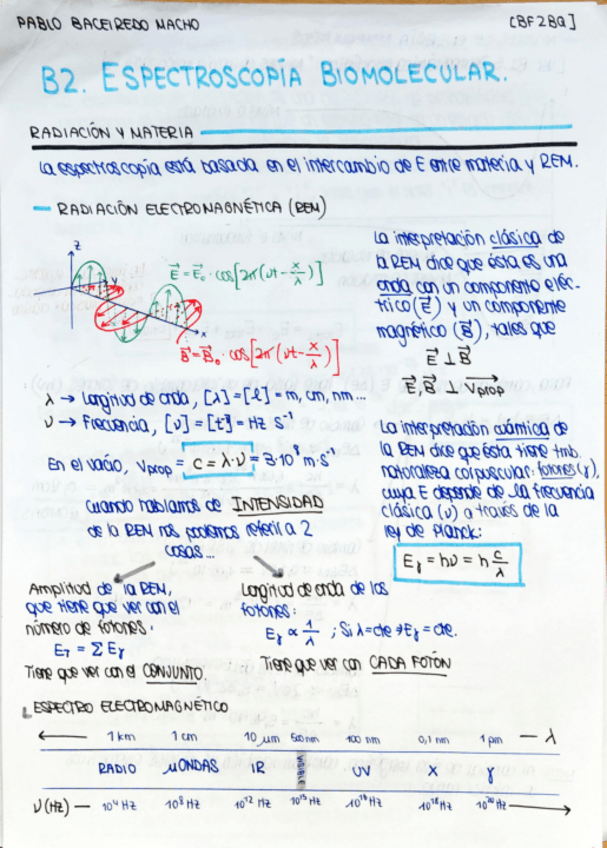 PABLO BACEIREDO MACHO [BF2BQ]
B2. ESPECTROSCOPÍA BIOMOLECULAR.
RADIACIÓN Y MATERIA
La espectroscopía está basada en el intercambio de E entre materia y REM.
— RADIACIÓN ELECTROMAGNÉTICA (REM)
z
y
x
E⃗ = E⃗₀ · cos[2π(νt - x/λ)]
B⃗ = B⃗₀ · cos[2π(νt - x/λ)]
La interpretación clásica de
la REM dice que ésta es una
onda con un componente eléc-
trico (E⃗) y un componente
magnético (B⃗), tales que
E⃗ ⊥ B⃗
E⃗, B⃗ ⊥ V⃗prop
λ → Longitud de onda, [λ] = [ℓ] = m, cm, nm...
ν → Frecuencia, [ν] = [t] = Hz s⁻¹
En el vacío, Vprop = C = λ·ν = 3·10⁸ m·s⁻¹
Cuando hablamos de INTENSIDAD
de la REM nos podemos referir a 2
cosas...
La interpretación cuántica de
la REM dice que ésta tiene tmb.
naturaleza corpuscular: fotones (γ),
cuya E depende de la frecuencia
clásica (ν) a través de la
ley de Planck:
Eγ = hν = h c/λ
Amplitud de la REM,
que tiene que ver con el
número de fotones.
ET = ΣEγ
Tiene que ver con el CONJUNTO.
Longitud de onda de los
fotones:
Eγ ∝ 1/λ ; Si λ = cte → Eγ = cte.
Tiene que ver con CADA FOTÓN
ESPECTRO ELECTROMAGNÉTICO
← 1 km 1 cm 10 μm 500 nm 100 nm 0,1 nm 1 pm — λ
RADIO μONDAS IR VISIBLE UV X γ
ν(Hz) — 10⁴ Hz 10⁸ Hz 10¹² Hz 10¹⁵ Hz 10¹⁶ Hz 10¹⁸ Hz 10²⁰ Hz →